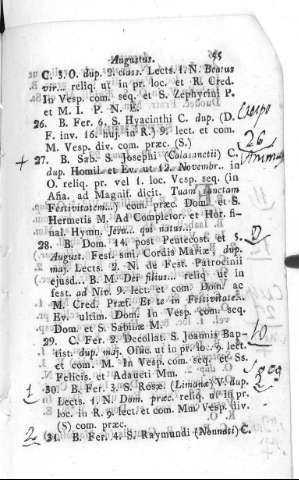 Augustus. 55
C. 3. O. dup. 2. class. Lects. 1. N. Beatus
vir... reliq. ut in pr. loc. et R. Cred.
In Vesp. com. seq. et S. Zephyrini P.
et M. I. P. N. E.
26. B. Fer. 6. S. Hyacinthi C. dup. (D.
F. inv. 16. huj. in R.) 9. lect. et com.
M. Vesp. div. com. præc. (S.)
26
+ 27. B. Sab. S. Josephi (Calasanctii) C.
dup. Homil. et Ev. ut 12. Novembr. in
O. reliq. pr. vel 1. loc. Vesp. seq. (in
Aña. ad Magnif. dicit. Tuam sanctam
Festivitatem...) com. præc. Dom. et S.
Hermetis M. Ad Completor. et Hor. fi-
nal. Hymn. Jesu... qui natus...
28. B. Dom. 14. post Pentecost. et S.
August. Fest. smi. Cordis Mariæ, dup.
maj. Lects. 2. N. de Fest. Patrocinii
ejusd... B. M. Der filius... reliq. ut in
fest. ad Niv. 9. lect. et com. Dom. ac
M. Cred. Præf. Et te in Festivitate...
Ev. ultim. Dom. In Vesp. com. seq.
Dom. et S. Sabinæ M.
29. C. Fer. 2. Decollat. S. Joannis Bap-
tist. dup. maj. Offic. ut in pr. lo. 9. lect.
et com. M. In Vesp. com. seq. et Ss.
Felicis. et Adaucti Mm.
1 30. B. Fer. 3. S. Rosæ (Limanæ) V. dup.
Lects. 1. N. Dom. præc. reliq. ut in pr.
loc. in R. 9. lect. et com. Mm. Vesp. div.
(S) com. præc.
2 31. B. Fer. 4. S. Raymundi (Nonnati) C.